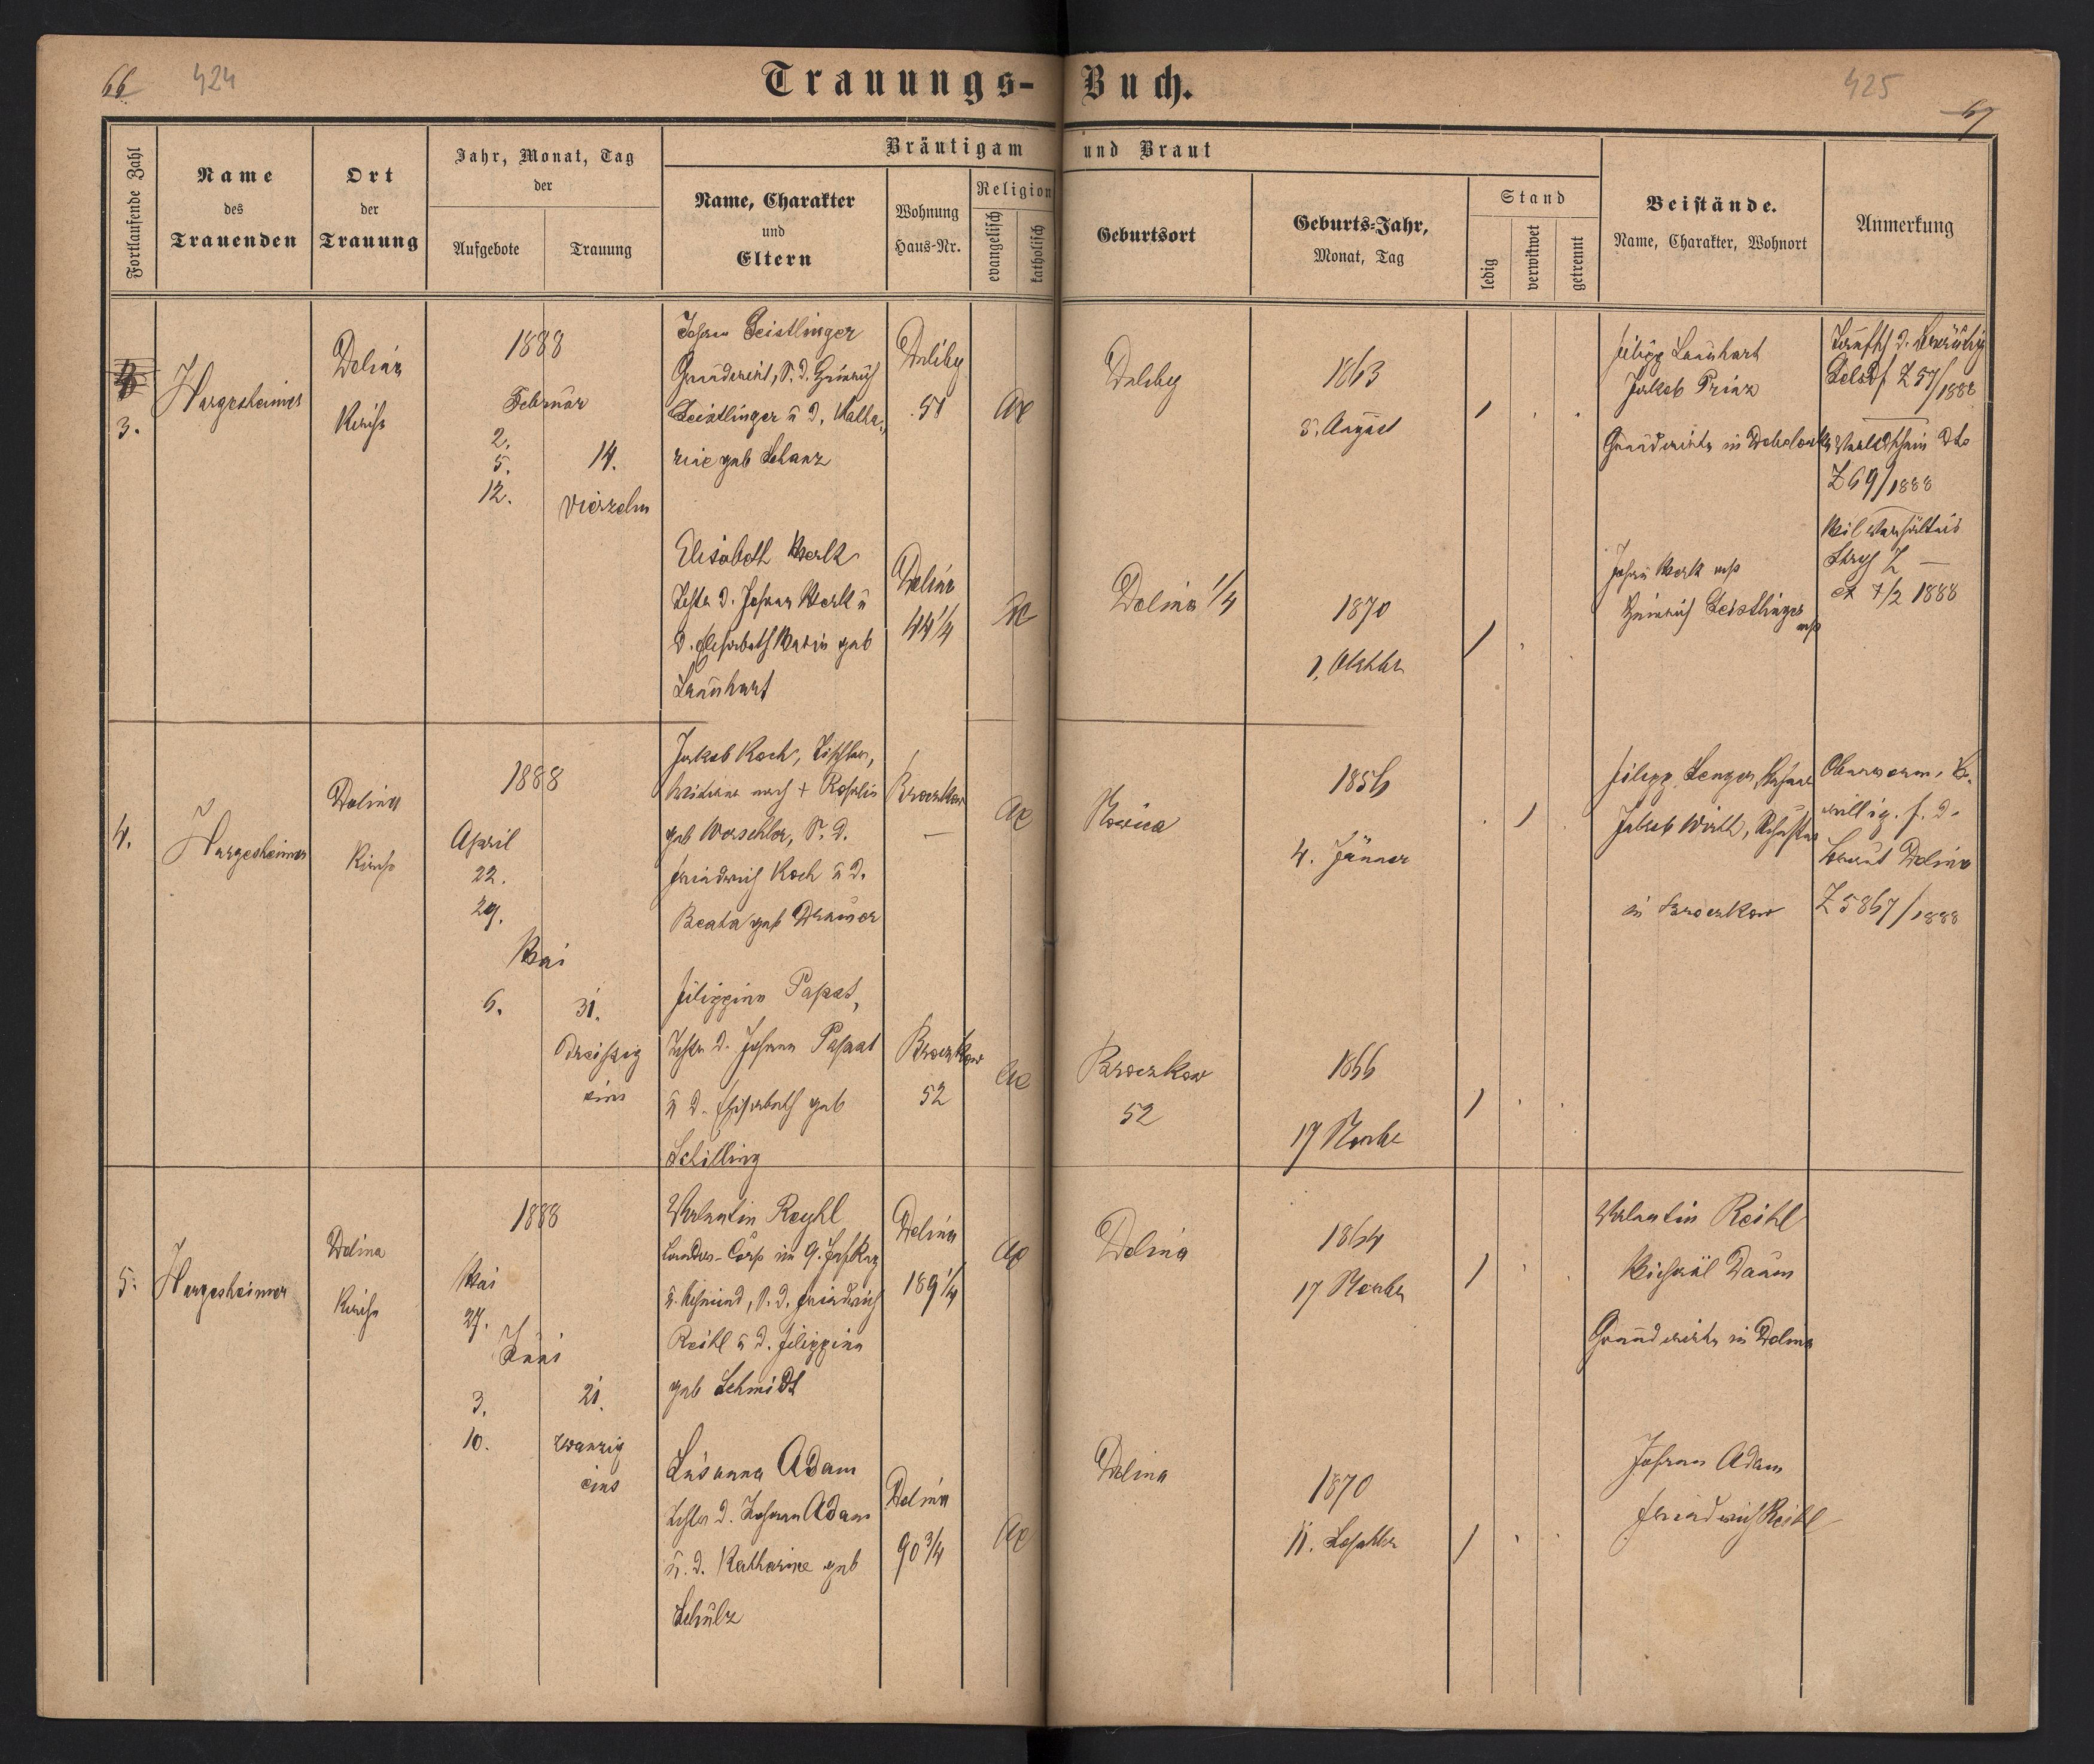 66 424
Trauungs-Buch.
425 67
Fortlaufende Zahl
Name
des
Trauenden
Ort
der
Trauung
Jahr, Monat, Tag
der
Aufgebote
Trauung
Bräutigam und Braut
Name, Charakter
und
Eltern
Wohnung
Haus-Nr.
Religion
evangelisch
katholisch
Geburtsort
Geburts-Jahr,
Monat, Tag
Stand
ledig
verwitwet
getrennt
Beistände.
Name, Charakter, Wohnort
Anmerkung
3.
Hargesheimer
Dolina
Kirche
1888
Februar
2.
5.
12.
14.
vierzehn
Johann Geistlinger
Grundwirt, S. d. Heinrich
Geistlinger u d. Katha-
rine geb Schanz
51
AC
1863
3. August
Filipp Launhart
Jakob Prinz
Grundwirte in
Z 57/1888
Z 69/1888
Stryj Z —
7/2 1888
Elisabeth Merk
Tochter d. Johann Merk u
d. Elisabeth Maria geb
Launhart
Dolina
44 1/4
AC
Dolina 1/4
1870
1. Oktober
Johann Merk
Heinrich Geistlinger
4.
Hargesheimer
Dolina
Kirche
1888
April
22.
29.
Mai
6.
31.
Dreißig
eins
Jakob Koch, Tischler,
Witwer nach + Rosalia
geb Worschler, S. d.
Friedrich Koch u d.
Beata geb Drauser
Broczkow
—
AC
1856
4. Jänner
Filipp Senger,
Jakob Wirth,
in Broczkow
Braut Dolina
Z 5867/1888
Filippina Papst,
Tochter d. Johann Papst
u d. Elisabeth geb
Schilling
Broczkow
52
AC
Broczkow
52
1866
17 Novbr
5.
Hargesheimer
Dolina
Kirche
1888
Mai
27.
Juni
3.
10.
21.
zwanzig
eins
Valentin Reyhl
S. d. Friedrich
Reihl u d. Filippina
geb Schmidt
Dolina
189 1/4
AC
Dolina
1864
17 Novbr
Valentin Reihl
Michael Daum
Grundwirte in Dolina
Susanna Adam
Tochter d. Johann Adam
u. d. Katharine geb
Schulz
Dolina
90 3/4
AC
Dolina
1870
11. Septbr
Johann Adam
Friedrich Reihl